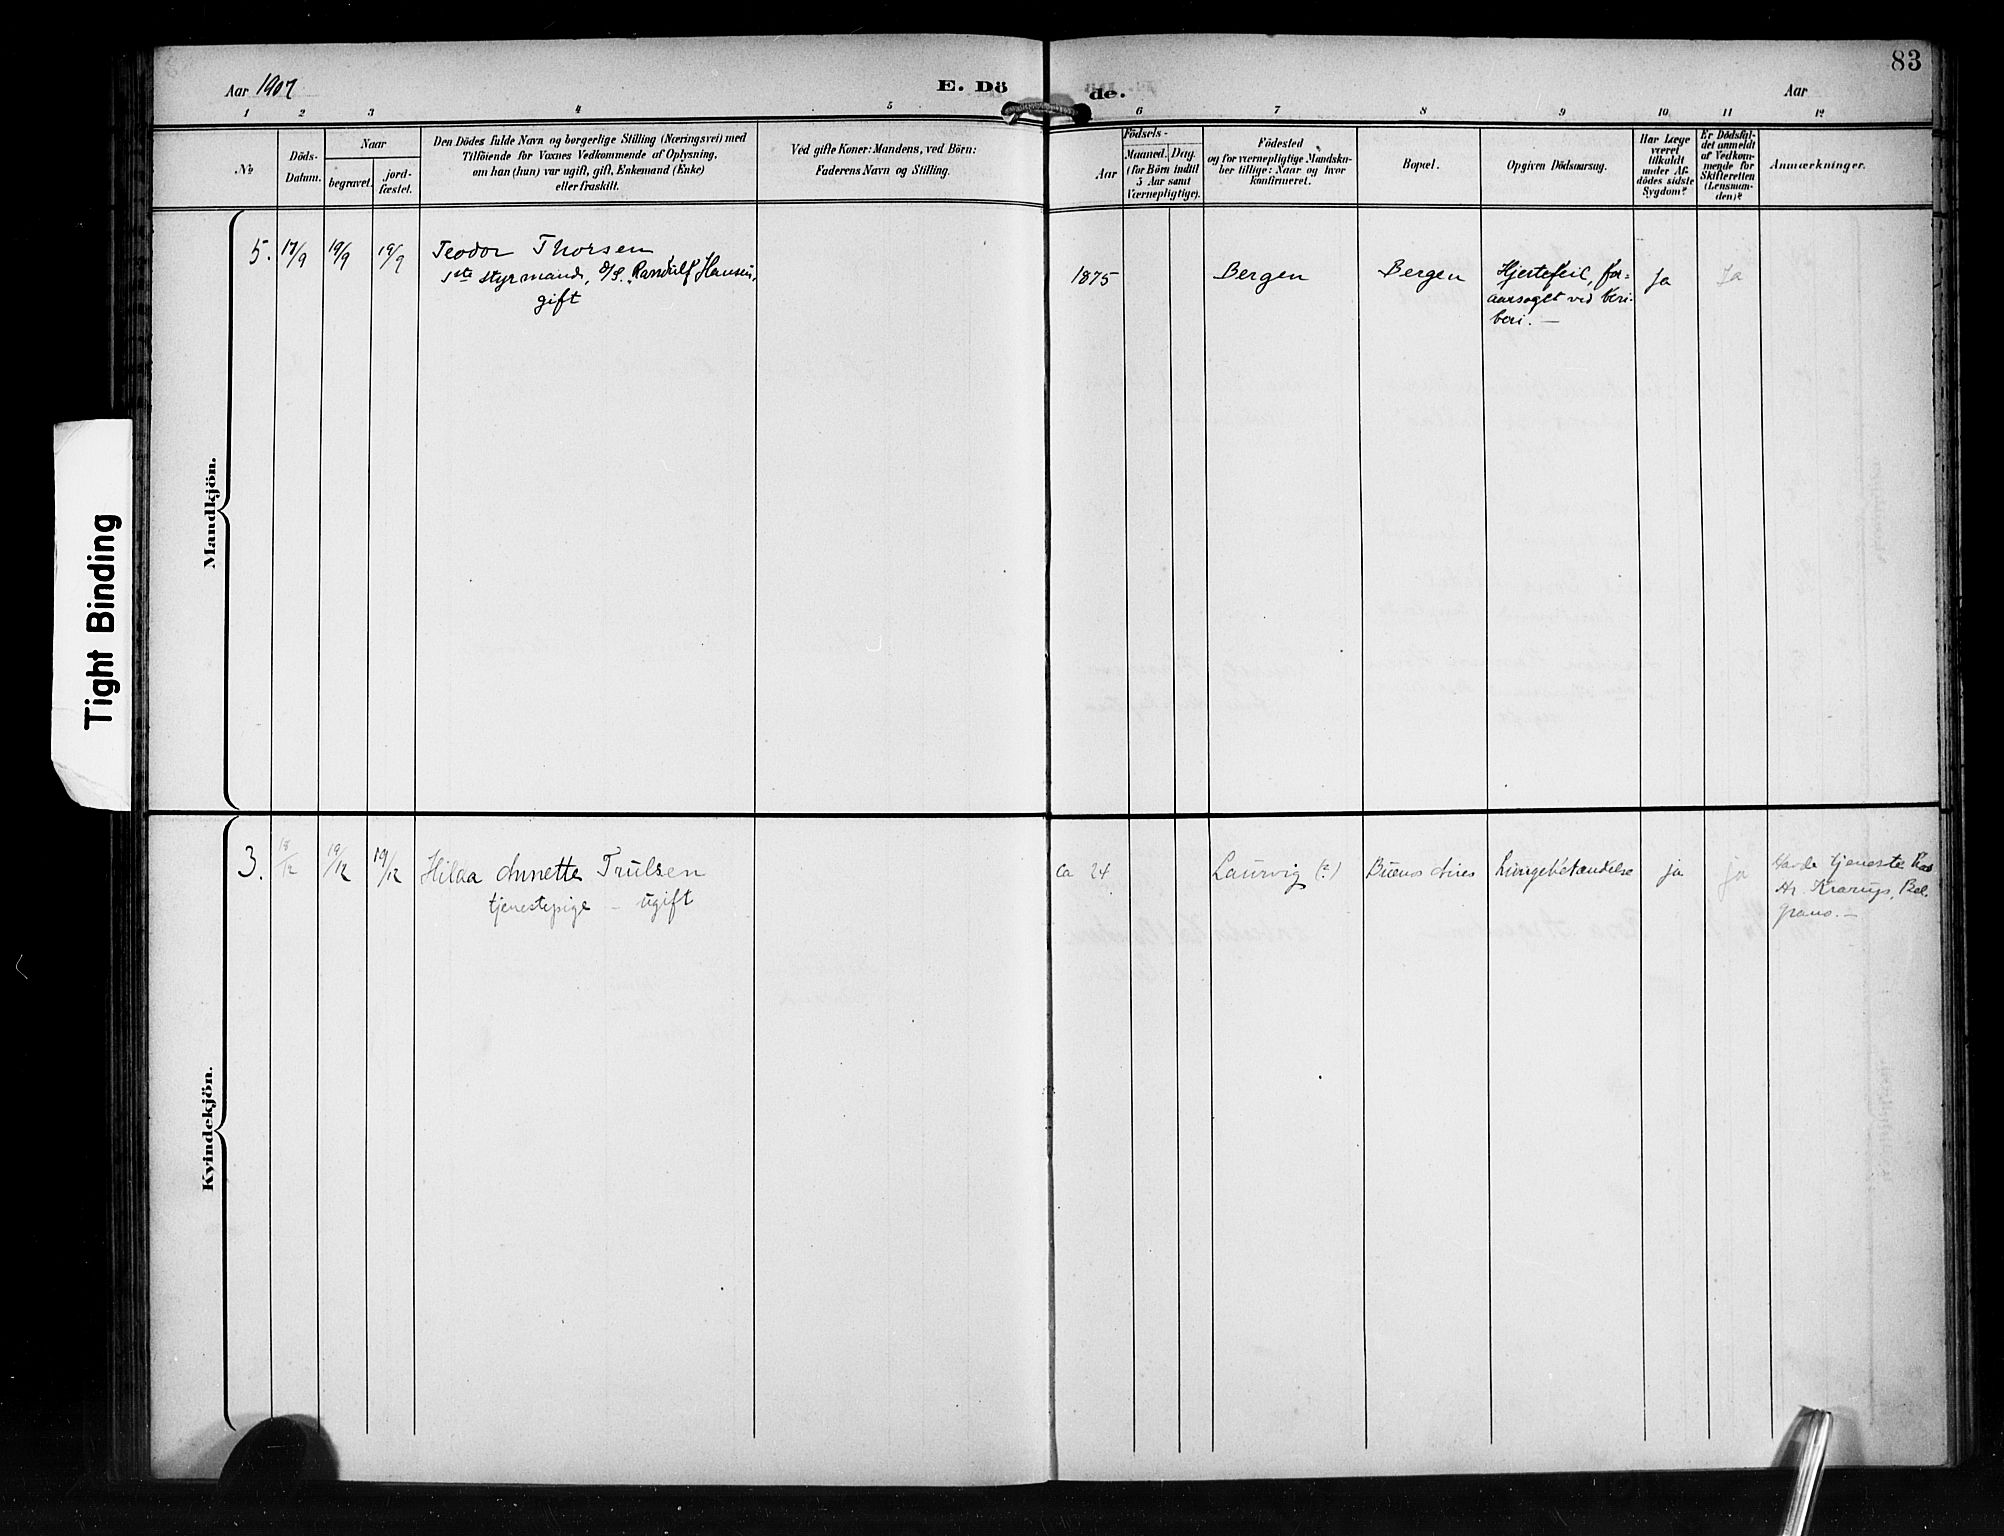 83
Aar 1907
E. Dö
de.
Aar
1 2 3 4 5 6 7 8 9 10 11 12
No
Döds-
Datum.
Naar
begravet.
jord-
fæstet.
Den Dödes fulde Navn og borgerlige Stilling (Næringsvei) med
Tilföiende for Voxnes Vedkommende af Oplysning,
om han (hun) var ugift, gift, Enkemand (Enke)
eller fraskilt.
Ved gifte Koner: Mandens, ved Börn:
Faderens Navn og Stilling.
Födsels-
Aar
Maaned.
Dag.
(for Börn indtil
5 Aar samt
Værnepligtige).
Födested
og for værnepligtige Mandska-
ber tillige: Naar og hvor
konfirmeret.
Bopæl.
Opgiven Dödsaarsag.
Har Læge
været
tilkaldt
under Af-
dödes sidste
Sygdom?
Er Dödsfal-
det anmeldt
af Vedkom-
mende for
Skifteretten
(Lensman-
den)?
Anmærkninger.
Mandkjön.
5. 17/9 19/9 19/9 Teodor Thorsen
1ste styrmand, D/S. Randulf Hansen,
gift
1875 Bergen Bergen Hjertefeil, for-
aarsaget ved beri-
beri. —
Ja Ja
Kvindekjön.
3. 18/12 19/12 19/12 Hilda Annette Trulsen
tjenestepige — ugift
ca 24 Laurvig (?) Buenos Aires Lungebetændelse ja ja Havde tjeneste hos
Hr. Krarup, Bel-
grano. —
Tight Binding